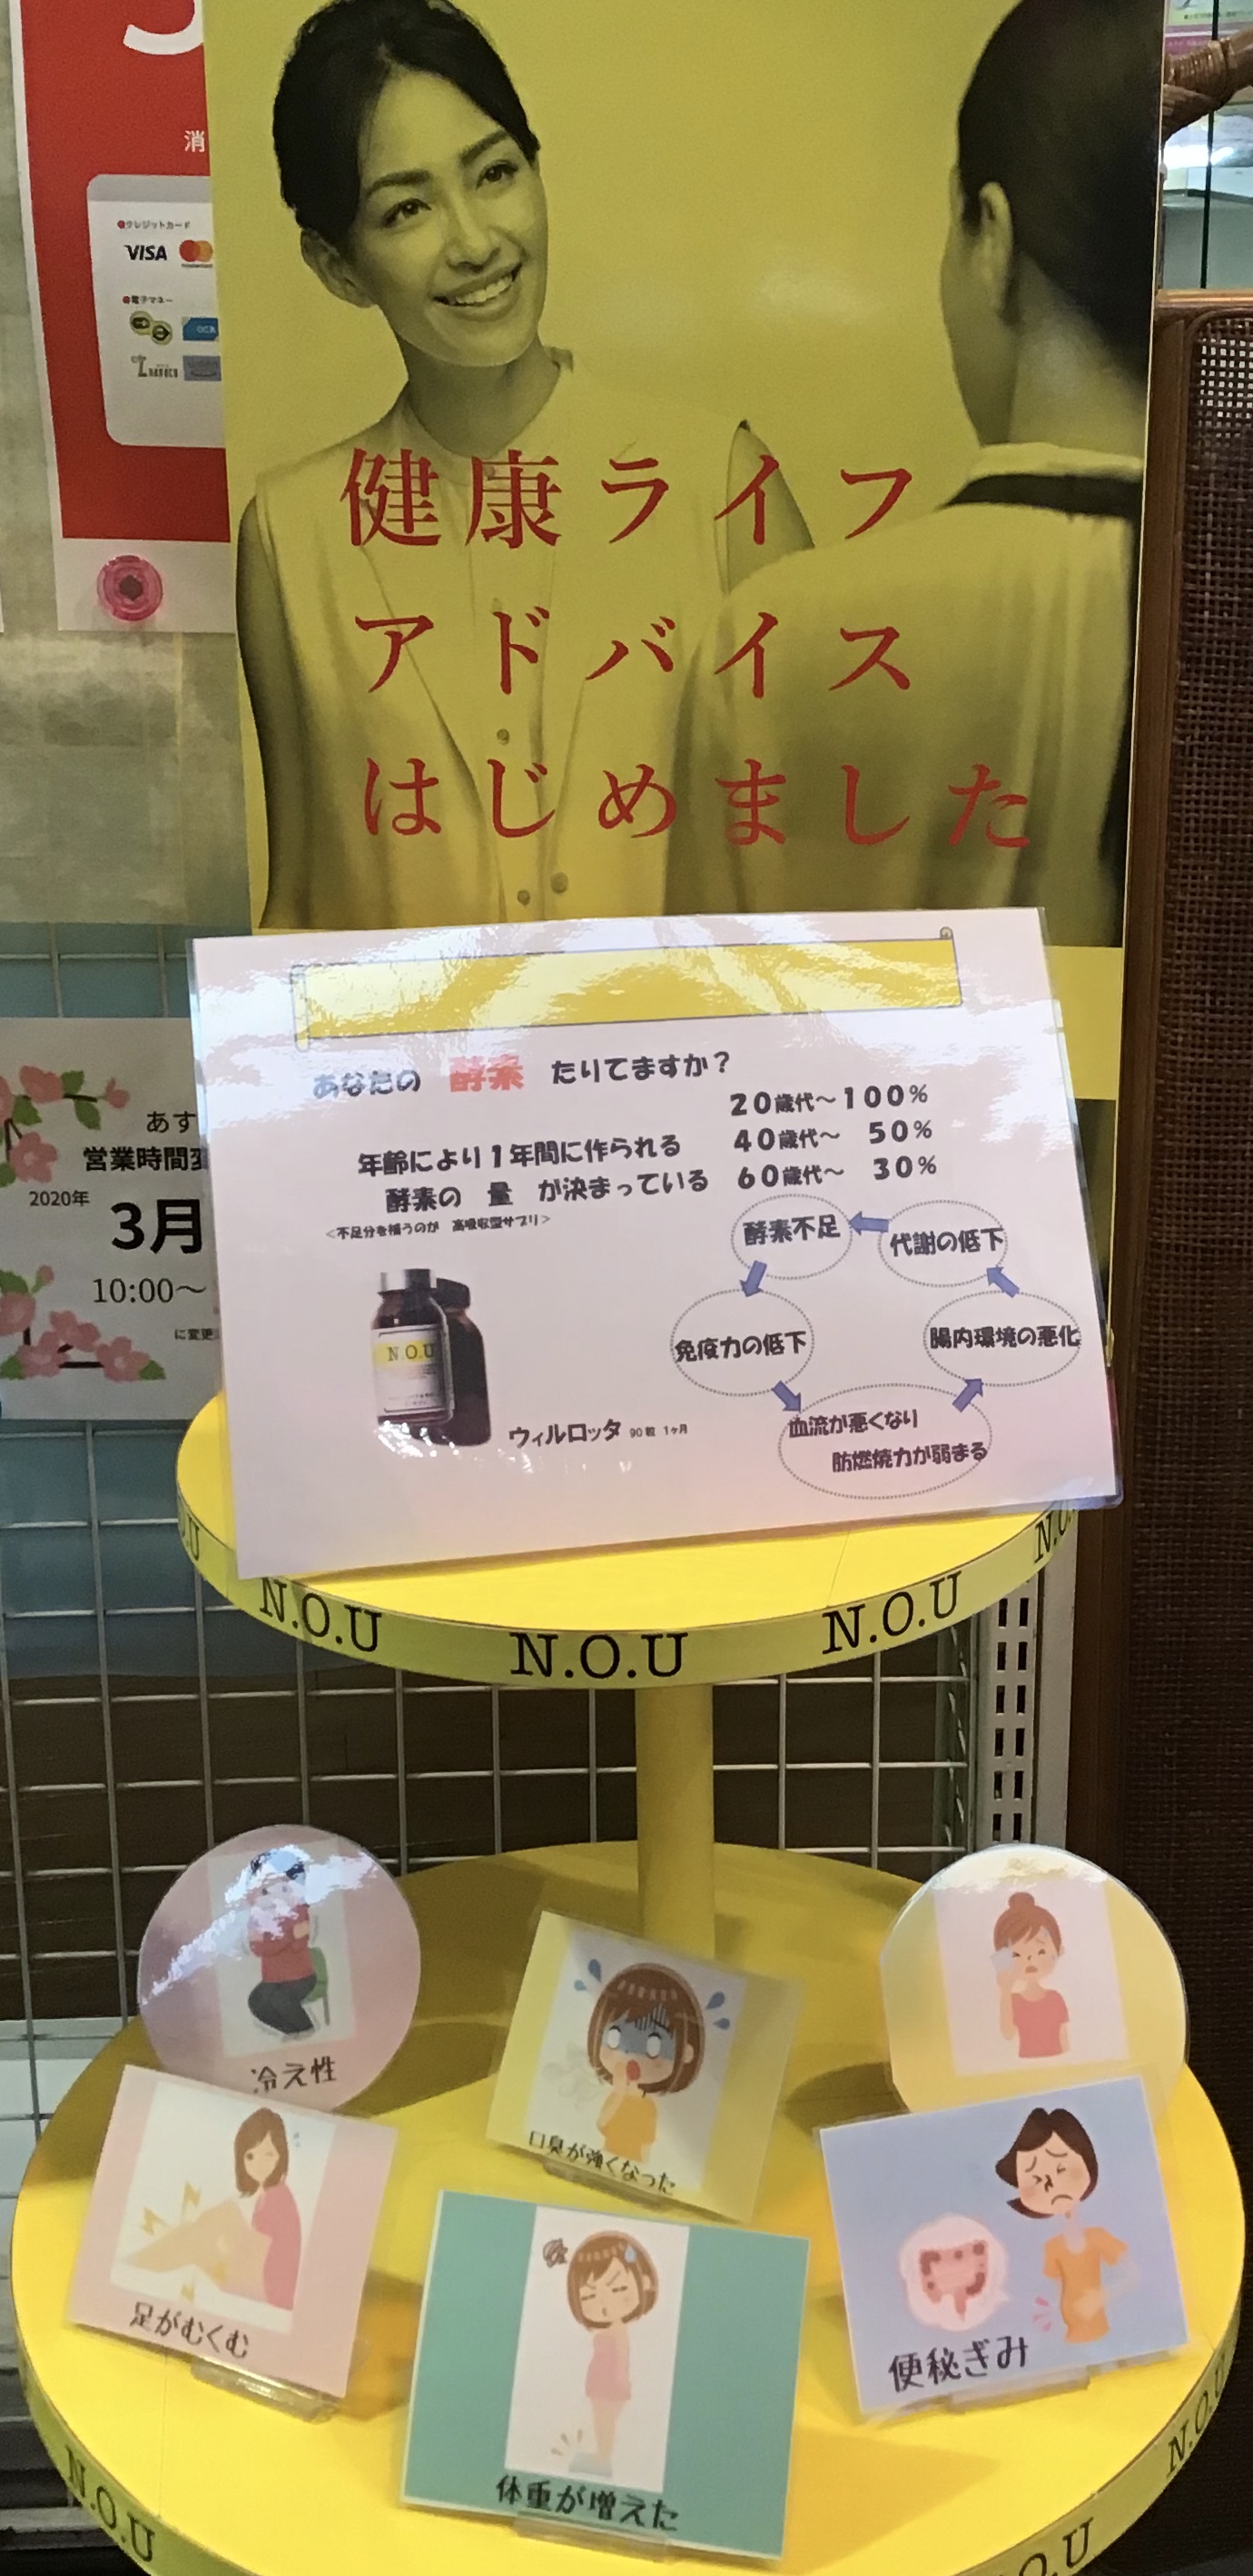 消
クレジットカード
VISA
電子マネー
nanaco
健康ライフ
アドバイス
はじめました
あなたの 酵素 たりてますか？
20歳代～100％
40歳代～ 50％
60歳代～ 30％
年齢により1年間に作られる
酵素の 量 が決まっている
<不足分を補うのが 高吸収型サプリ>
酵素不足
代謝の低下
免疫力の低下
腸内環境の悪化
血流が悪くなり
肪燃焼力が弱まる
N.O.U
ウィルロッタ 90粒 1ヶ月
あす
営業時間変
2020年
3月
10:00～
に変更
N.O.U
N.O.U
N.O.U
N.O.
冷え性
口臭が強くなった
足がむくむ
便秘ぎみ
体重が増えた
N.O.U
N.O.U
O.U